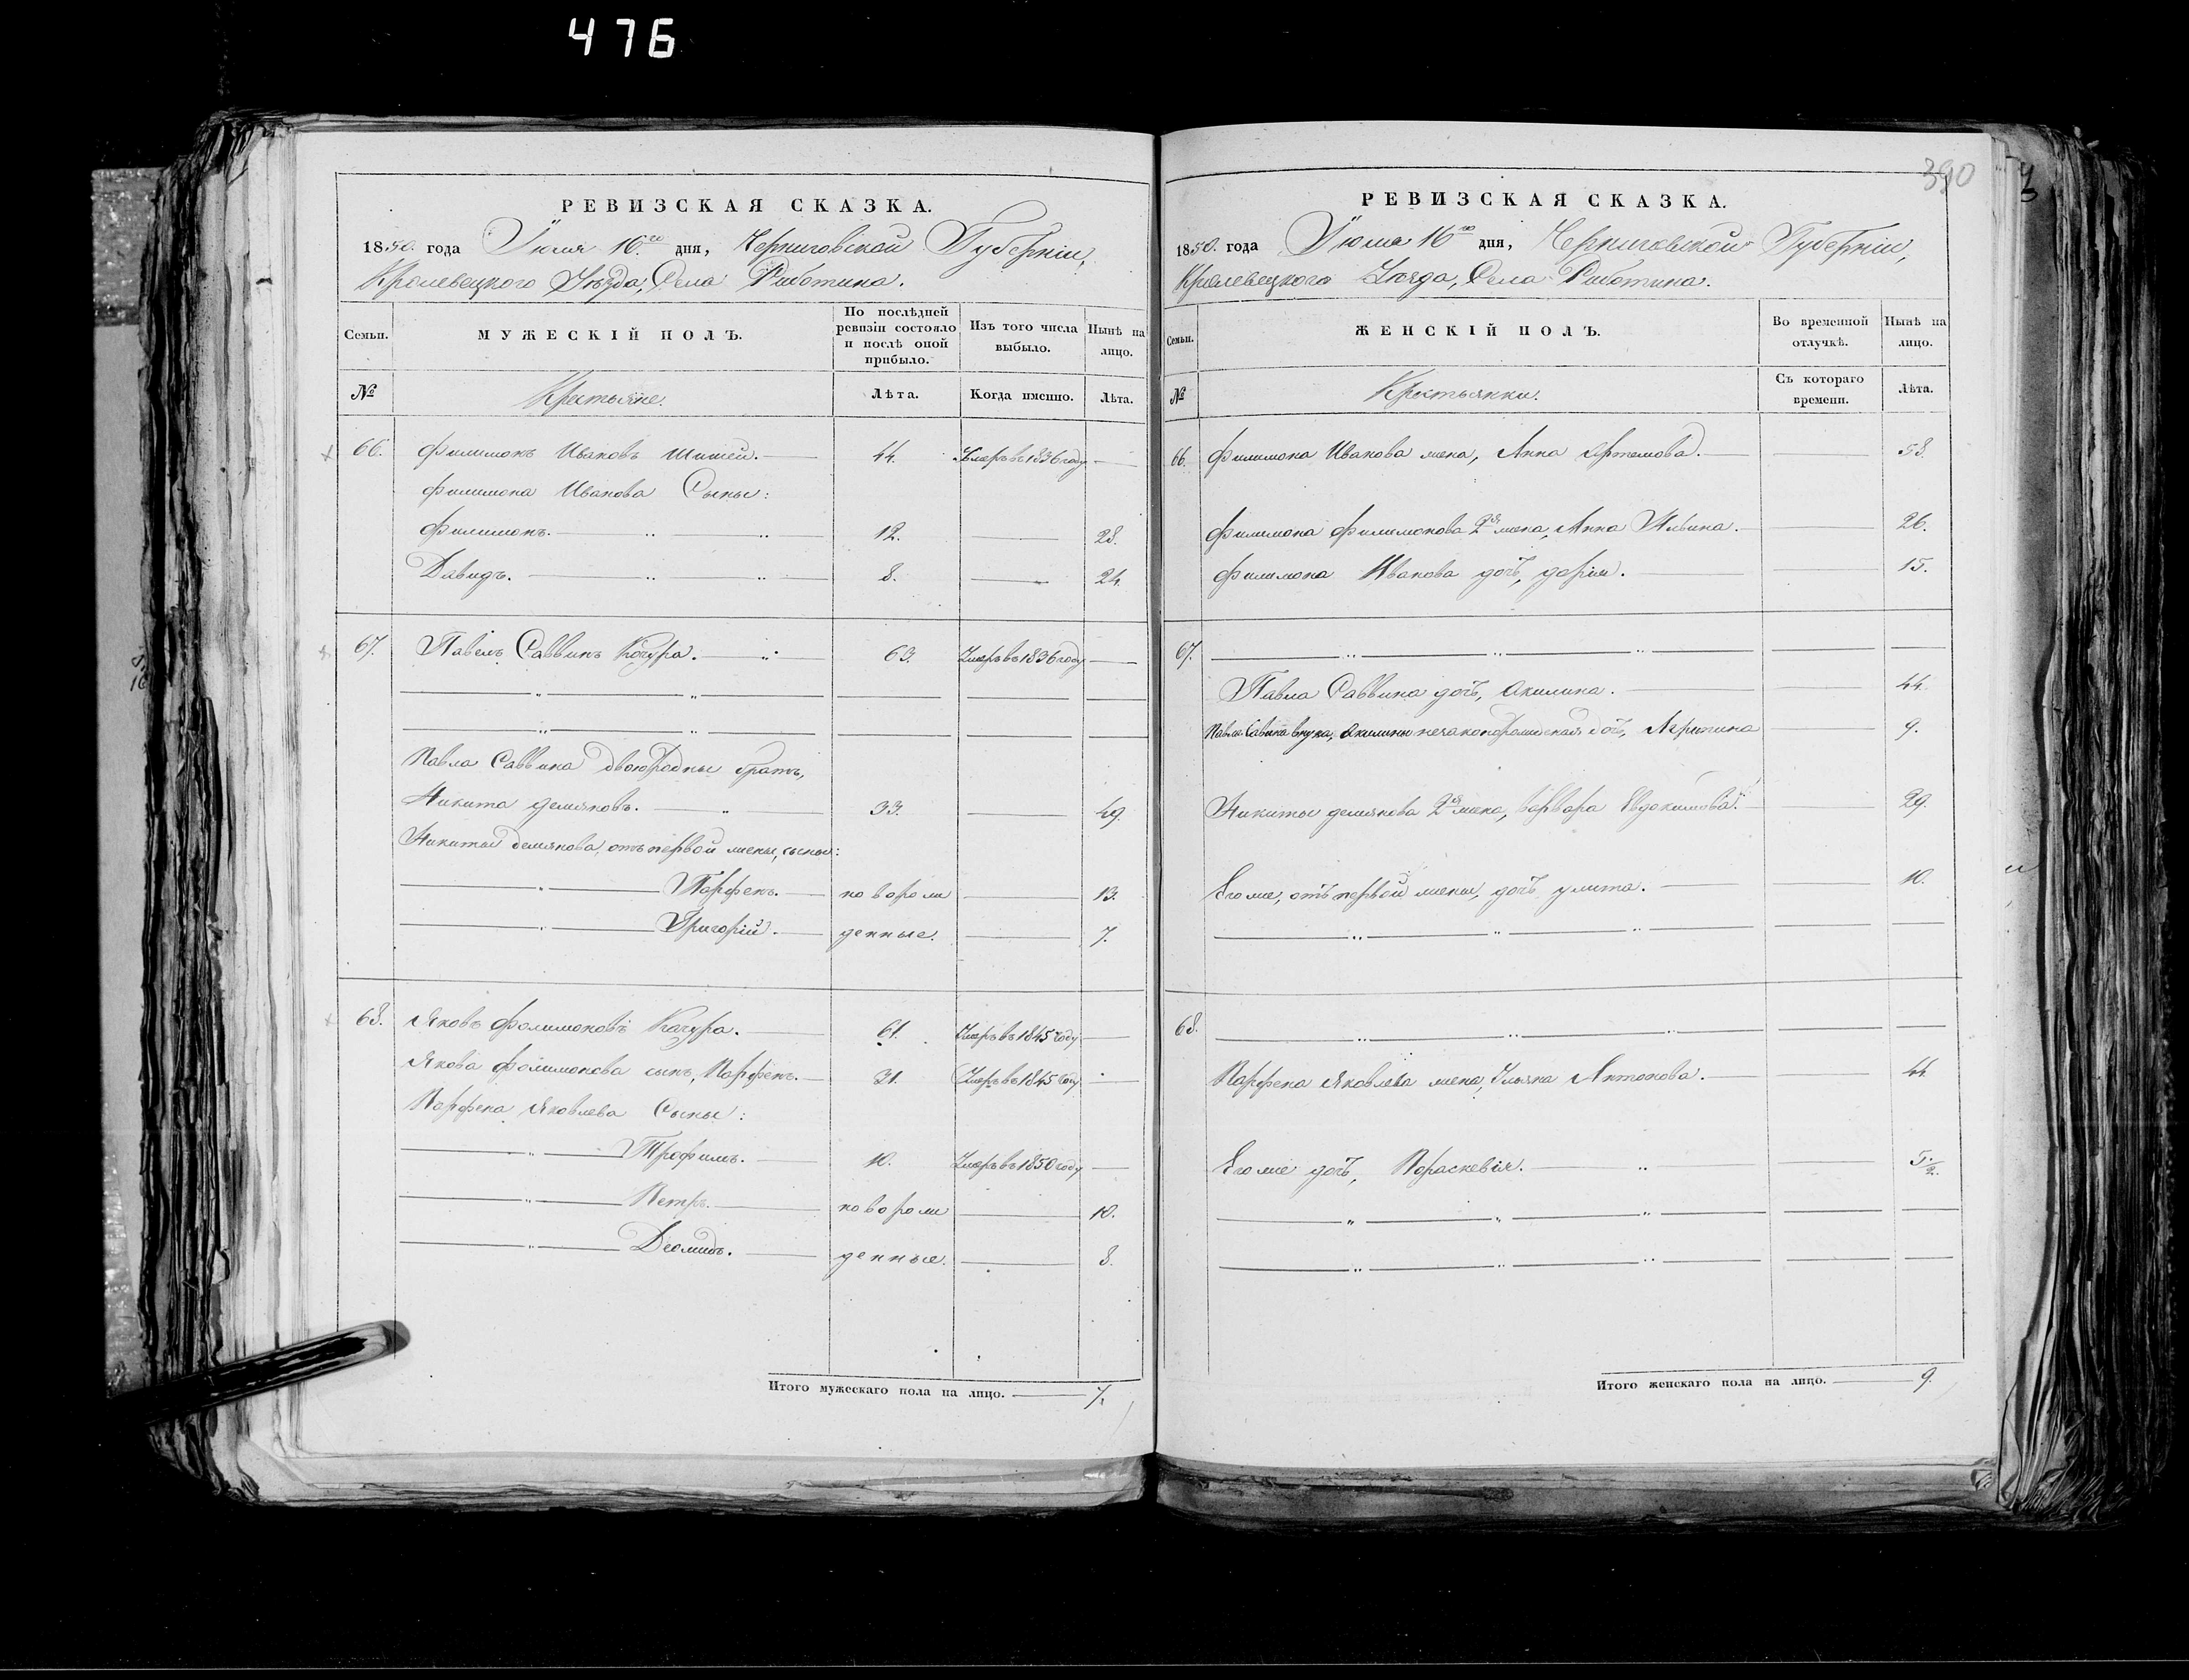 476
РЕВИЗСКАЯ СКАЗКА.
1850. года Іюля 16го дня, Черниговской Губерніи,
Кролевецкого Уѣзда, Села Работина.
Семьи.
МУЖЕСКІЙ ПОЛЪ.
По послѣдней ревизіи состояло и послѣ оной прибыло.
Изъ того числа выбыло.
Нынѣ на лицо.
№
Крестьяне.
Лѣта.
Когда именно.
Лѣта.
66. Филимонъ Ивановъ Шишей. 44. Умеръ въ 1836 году
Филимона Иванова Сыны:
Филимонъ. 12. 28.
Давидъ. 8. 24.
67. Павелъ Саввинъ Качура. 63. Умеръ въ 1836 году
Павла Саввина двоюродные братъ,
Никита демяновъ. 33. 49.
Никиты демянова, отъ первой жены, сыны:
Парфенъ. новорож 13.
Григорій. денные. 7.
68. Яковъ Филимоновъ Качура. 61. Умеръ въ 1845 году
Якова Филимонова сынъ, Парфенъ. 31. Умеръ въ 1845 году
Парфена Яковлева Сыны:
Трофимъ. 10. Умеръ въ 1850 году
Петръ. новорож 10.
Деомидъ. денные. 8.
Итого мужескаго пола на лицо. 7.
390
РЕВИЗСКАЯ СКАЗКА.
1850. года Іюля 16го дня, Черниговской Губерніи,
Кролевецкого Уѣзда, Села Работина.
Семьи.
ЖЕНСКІЙ ПОЛЪ.
Во временной отлучкѣ.
Нынѣ на лицо.
№
Крестьянки.
Съ котораго времени.
Лѣта.
66. Филимона Иванова жена, Анна Артемова. 58.
Филимона Филимонова 2я жена, Анна Ильина. 26.
Филимона Иванова дочь, дарія. 15.
67.
Павла Саввина дочь, Акилина. 44.
Павла Савина внука, Акилины незаконорожденная дочь, Агрипина 9.
Никиты демянова 2я жена, Варвара Евдокимова. 29.
Его же, отъ первой жены, дочь улита. 10.
68.
Парфена Яковлева жена, Ульяна Антонова. 44.
Его же дочь, Параскевія. 5 1/2.
Итого женскаго пола на лицо. 9.